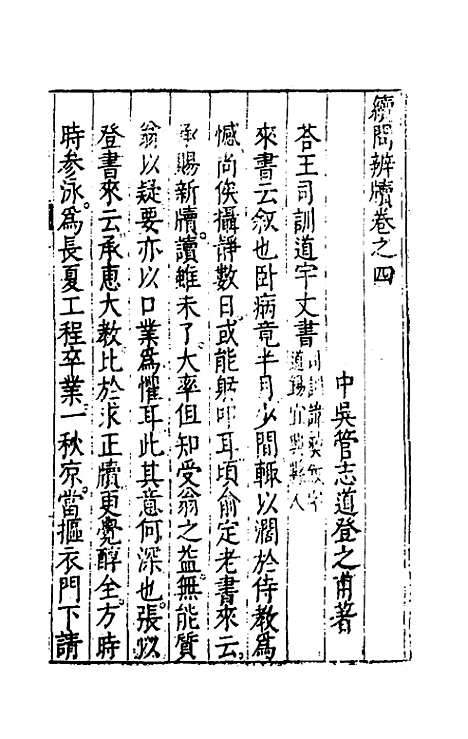 續問辨牘卷之四
中吳管志道登之甫著
荅王司訓道宇丈書
道錫宜興縣人
來書云叙也卧病竟半月少間輙以濶於侍教爲
憾尚俟攝靜數日或能躬叩耳頃俞定老書來云
承賜新牘讀雖未了大率但知受翁之益無能質
翁以疑要亦以口業爲懼耳此其意何深也張
登書來云承惠大教比於求正牘更覺醇全方時
時參泳爲長夏工程卒業一秋凉當摳衣門下請